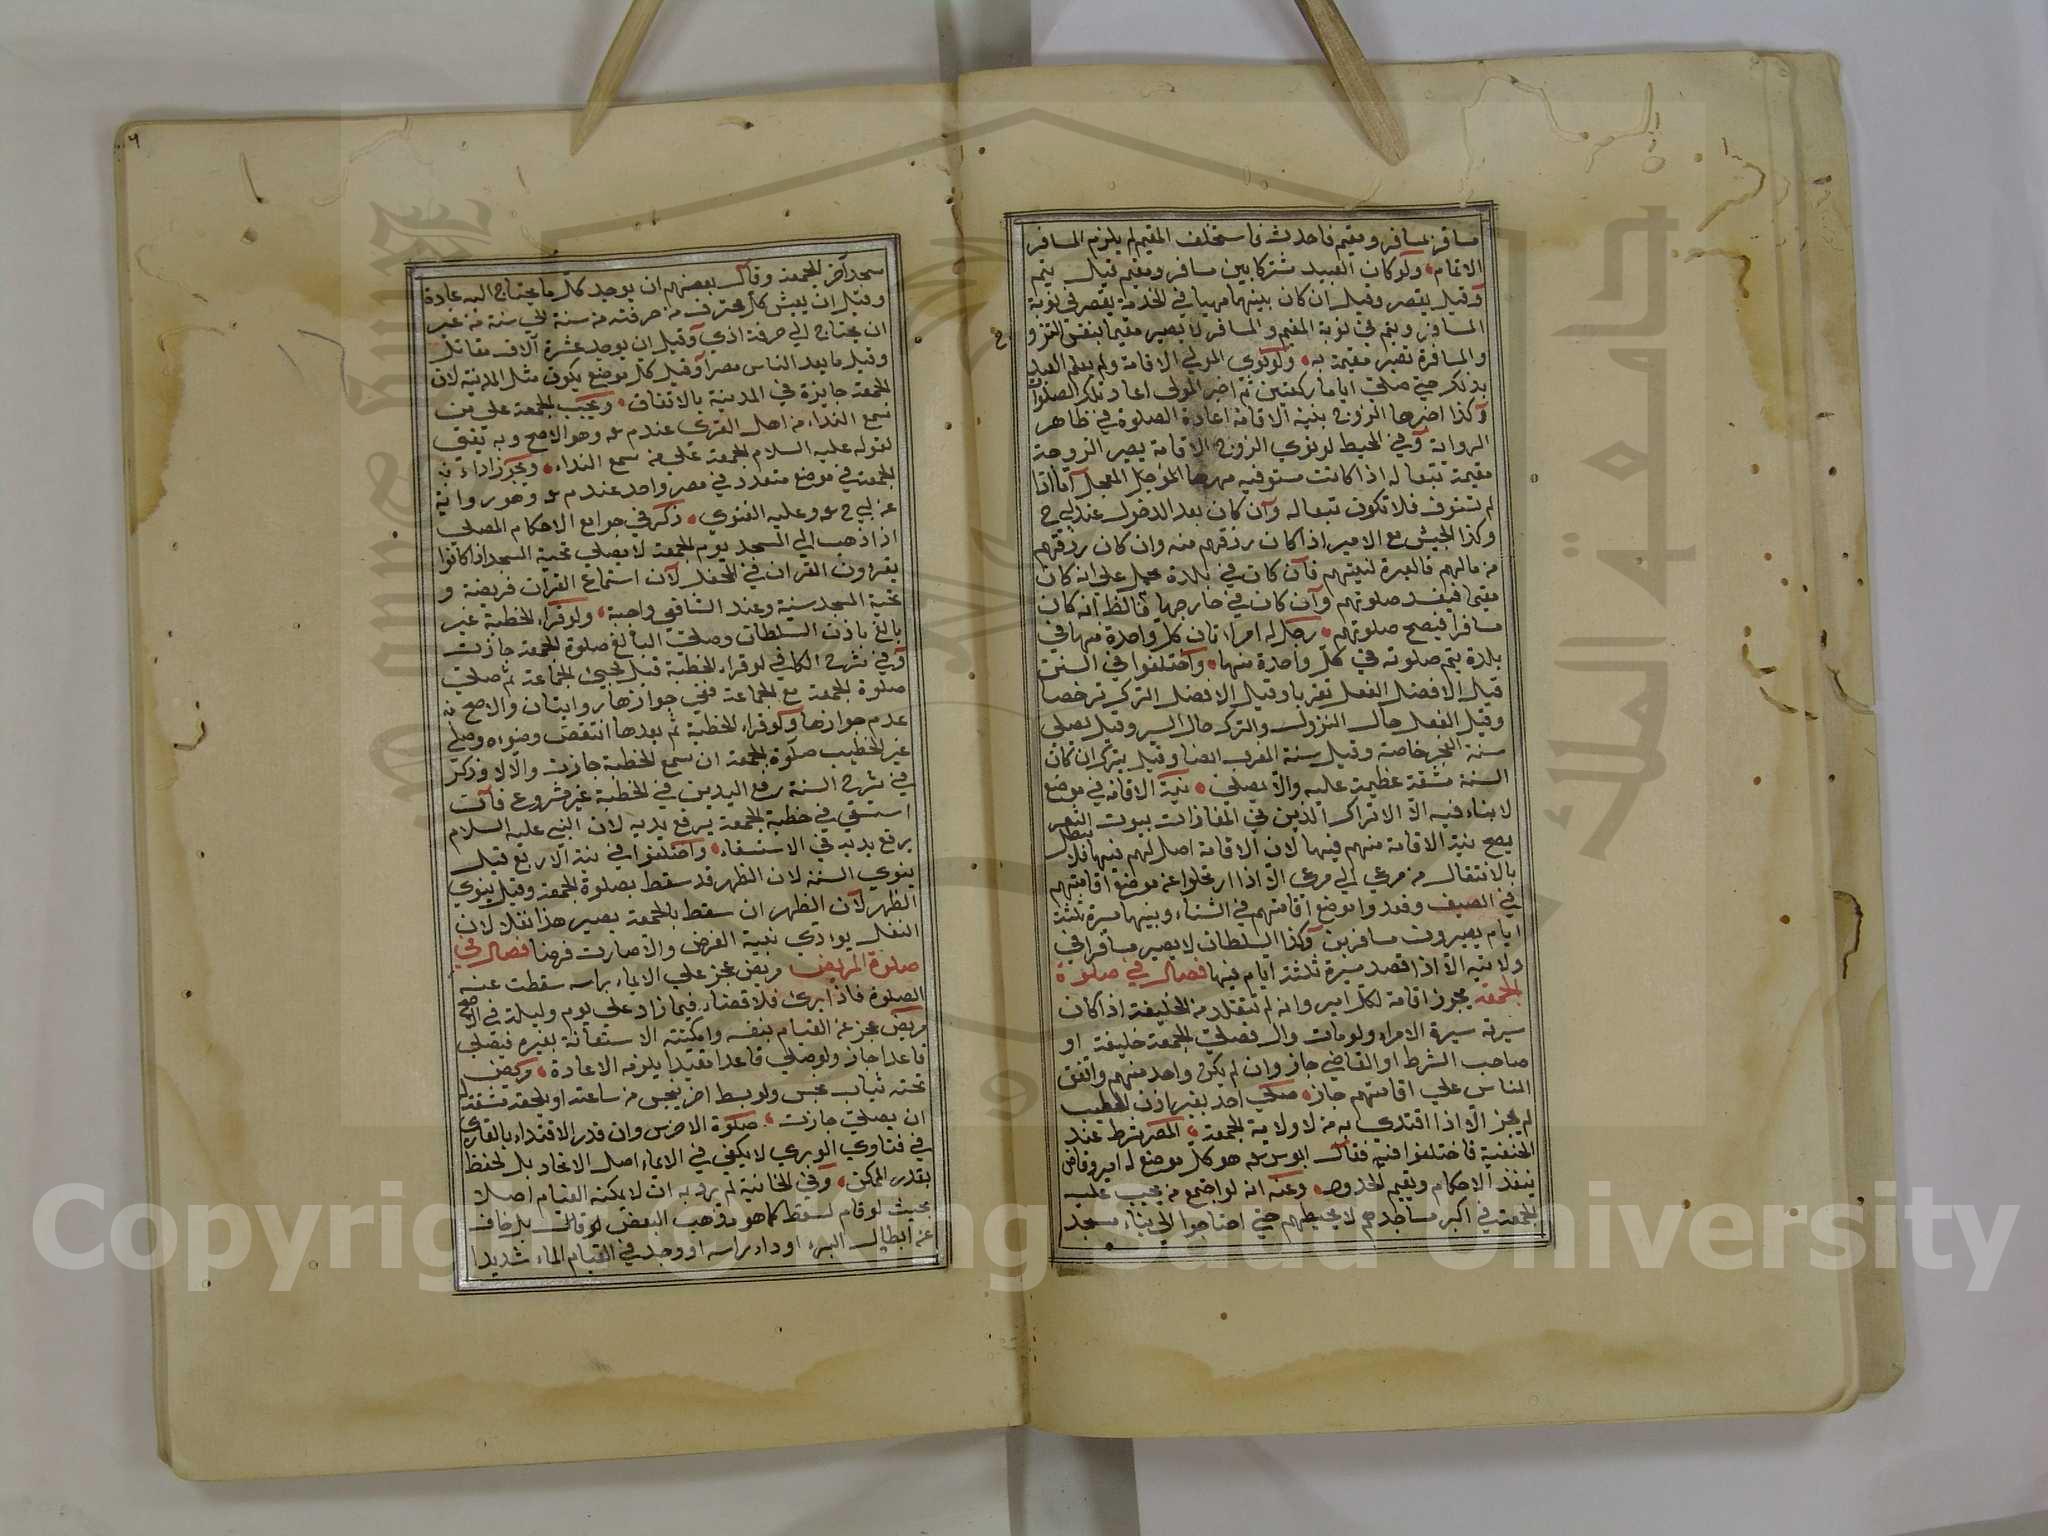 مسافر بمسافر ومقيم فاحدث فاستخلف المقيم لم يلزم المسافر
الاتمام ولو كان العبيد مشتركا بين مسافر ومقيم قيل يتم
وقيل يقصر وقيل ان كان بينهما مهياة في الخدمة يقصر في نوبة
المسافر ويتم في نوبة المقيم والمسافر لا يصير مقيما بنفس التزوج
والمسافرة تصير مقيمة به ولو نوي المولي الاقامة ولم يعلم العبد
بذلك حتي صلي اياما ركعتين ثم اخبر المولي اعاد تلك الصلوات
وكذا اخبرها الزوج بنية الاقامة اعادة الصلوة في ظاهر
الرواية وفي المحيط لو نوي الزوج الاقامة يصير الزوجة
مقيمة تبعا له اذا كانت مستوفيه مهرها المعجل اما اذا
لم تستوف فلا تكون تبعا له وان كان بعد الدخول عند ابي ح
وكذا الجيش مع الامير اذا كان رزقهم منه وان كان رزقهم
من مالهم فالعبرة لنيتهم فان كان في بلدة يحمل علي انه كان
مقيما فيفسد صلوتهم وان كان في خارجها فالظ انه كان
مسافرا فيصح صلوتهم رجل له امراتان كل واحدة منهما في
بلدة يتم صلوته في كل واحدة منها واختلفوا في السنن
قيل الافضل الفعل تقربا وقيل الافضل الترك ترخصا
وقيل الفعل حال النزول والترك حال السير وقيل يصلي
سنة الفجر خاصة وقيل سنة المغرب ايضا وقيل يترك ان كان
السنة مشقة عظيمة عليه والا يصلي نية الاقامة في موضع
لا بناء فيه الا الاتراك الذين في المفازات بيوت الشعر
يصح نية الاقامة منهم فيها لان الاقامة اصل لهم فيها فلا تبطل
بالانتقال من مرعي الي مرعي الا اذا ارتحلوا عن موضع اقامتهم
في الصيف وقصدوا موضع اقامتهم في الشتاء وبينهما مسيرة ثلثة
ايام يصيرون مسافرين وكذا السلطان لا يصير مسافرا في
ولايته الا اذا قصد مسيرة ثلثة ايام فيها فصل في صلوة
الجمعة يجوز اقامة لكل امير وان لم تتقلد من الخليفة اذا كان
سيرته سيرة الامراء ولو مات وال فصلي الجمعة خليفة او
صاحب الشرط او القاضي جاز وان لم يكن واحد منهم واتفق
الناس علي اقامتهم جاز صلي احد بغير اذن الخطيب
لم يجز الا اذا اقتدي به من له ولاية الجمعة المصر شرط عند
الحنفية فاختلفوا فيه فقال ابو س ره هو كل موضع له امير وقاض
ينفذ الاحكام ويقيم الحدود وعنه انه لو اجتمع من يجب عليه
الجمعة في اكبر مساجدهم لا يحيطهم حتي احتاجوا الي بناء مسجد
مسجد اخر للجمعة وقال بعضهم ان يوجد كل ما يحتاج اليه عادة
وقيل ان يعيش كل محترف من حرفته من سنة الي سنة من غير
ان يحتاج الي حرفة اخري وقيل ان يوجد عشرة آلاف مقاتل
وقيل ما يعد الناس مصرا وقيل كل موضع يكون مثل المدينة لان
الجمعة جايزة في المدينة بالاتفاق ويجب الجمعة علي من
سمع النداء من اهل القري عند م ره وهو الاصح وبه يفتي
لقوله عليه السلام الجمعة علي من سمع النداء ويجوز اداء
الجمعة في موضع متعدد في مصر واحد عند م ره وهو رواية
عن ابي ح ره وعليه الفتوي ذكر في جوامع الاحكام المصلي
اذا ذهب الي المسجد يوم الجمعة لا يصلي تحية المسجد اذا كانوا
يقرءون القران في المحفل لان استماع القران فريضة و
تحية المسجد سنة وعند الشافعي واجبة ولو قراء الخطبة غير
بالغ باذن السلطان وصلي البالغ صلوة الجمعة جازت
وفي شرح الكافي لو قراء الخطبة قبل مجئ الجماعة ثم صلي
صلوة الجمعة مع الجماعة ففي جوازها روايتان والاصح
عدم جوازها ولو قراء الخطبة ثم بعدها انتقض وضوءه وصلي
غير الخطيب صلوة الجمعة ان سمع الخطبة جازت والا لا وذكر
في شرح السنة رفع اليدين في الخطبة غير مشروع فان
استسقي في خطبة الجمعة يرفع يديه لان النبي عليه السلام
يرفع يديه في الاستسقاء واختلفوا في نية الاربع قيل
ينوي السنة لان الظهر قد سقط بصلوة الجمعة وقيل ينوي
الظهر لان الظهر ان سقط بالجمعة يصير هذا نفلا لان
النفل يوادي بنية الفرض والا صارت فرضا فصل في
صلوة المريض مريض عجز علي الايماء براسه سقطت عنه
الصلوة فاذا برئ فلا قضاء فيما زاد علي يوم وليلة في الاصح
مريض عجز عن القيام بنفسه وامكنته الاستعانة بغيره فيصلي
قاعدا جاز ولو صلي قاعدا مقيدا يلزمه الاعادة مريض
تحته ثياب نجس ولو بسط اخر ينجس من ساعته او يلحقه مشقة له
ان يصلي جازت صلوة الاخرس وان قدر الاقتداء بالقاري
في فتاوي الوبري لا يكفي في الايماء اصل الانحاد بل تحفظ
بقدر الممكن وفي الخانية لم يرد به ان لا يمكنه القيام اصلا
بحيث لو قام لسقط كما هو مذهب البعض لو قال بل خاف
عن ابطال البرء او داء راسه او وجد في القيام الماء شديدا
Copyright © King Saud University
جامعة الملك سعود